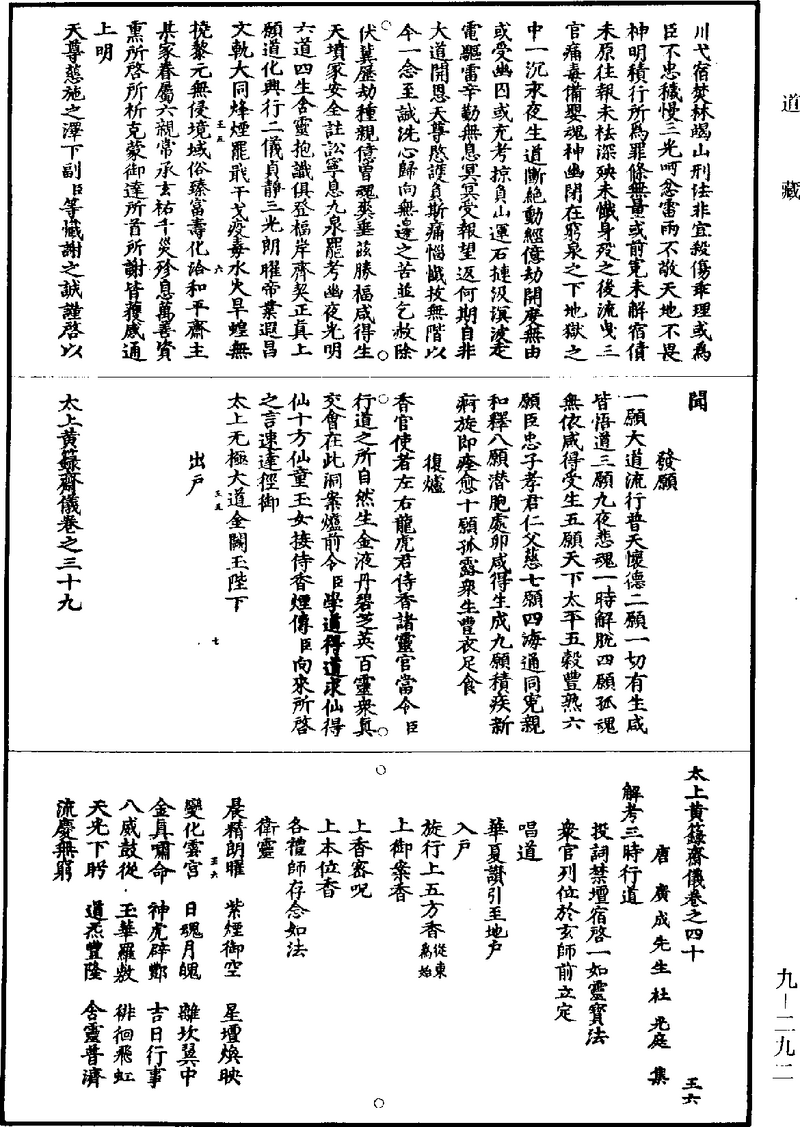 道藏
川弋宿焚林竭山刑法非宜殺傷乖理或為
臣不忠穢慢三光呵忿雷雨不敬天地不畏
神明積行所為罪條無量或前冤未解宿債
未原往報未祛深殃未懺身歿之後流曳三
官痛毒備嬰魂神幽閉在窮泉之下地獄之
中一沉永夜生道斷絶動經億劫開度無由
或受幽囚或充考掠負山運石揵汲溟波走
電驅雷辛勤無息冥冥受報望返何期自非
大道開恩天尊愍護負斯痛惱懺拔無階以
今一念至誠洗心歸向無邊之苦並乞赦除
伏冀歷劫種親億曽魂爽垂兹勝福咸得生
天墳冢安全註訟寧息九泉罷考幽夜光明
六道四生含靈抱識俱登福岸齊契正真上
願道化興行二儀貞静三光朗曜帝業遐昌
文軌大同烽煙罷戢干戈疫毒水火旱蝗無
王五 六
撓黎元無侵境域俗臻富壽化洽和平齋主
某家眷屬六親常承玄祐千災殄息萬善資
熏所啓所祈克蒙御達所首所謝皆獲感通
上明
天尊慈施之澤下副臣等懺謝之誠謹啓以
聞
發願
一願大道流行普天懷德二願一切有生咸
皆悟道三願九夜悲魂一時解脫四願孤魂
無依咸得受生五願天下太平五穀豐熟六
願臣忠子孝君仁父慈七願四海通同寃親
和釋八願潜胞處卵咸得生成九願積疾新
痾旋即痊愈十願孤露衆生豐衣足食
復爐
香官使者左右龍虎君侍香諸靈官當令臣
行道之所自然生金液丹碧芝英百靈衆真
交會在此洞案爐前令臣學道得道求仙得
仙十方仙童玉女接侍香煙傳臣向來所啓
之言速達徑御
太上无極大道金闕玉陛下
王五 七
出戶
太上黄籙齋儀卷之三十九
太上黄籙齋儀卷之四十
王六
唐廣成先生杜光庭集
解考三時行道
投詞禁壇宿啓一如靈寶法
衆官列位於玄師前立定
唱道
華夏讃引至地戶
入戶
旋行上五方香從東為始
上御案香
上香密呪
上本位香
各禮師存念如法
衛靈
晨精朗曜 紫煙御空 星壇煥映
王六
變化雲宮 日魂月魄 離坎翼中
金真嘯命 神虎辟鄷 吉日行事
八威鼓從 玉華羅敷 徘徊飛虹
天光下眄 道炁豐隆 含靈普濟
流慶無窮
九－二九二